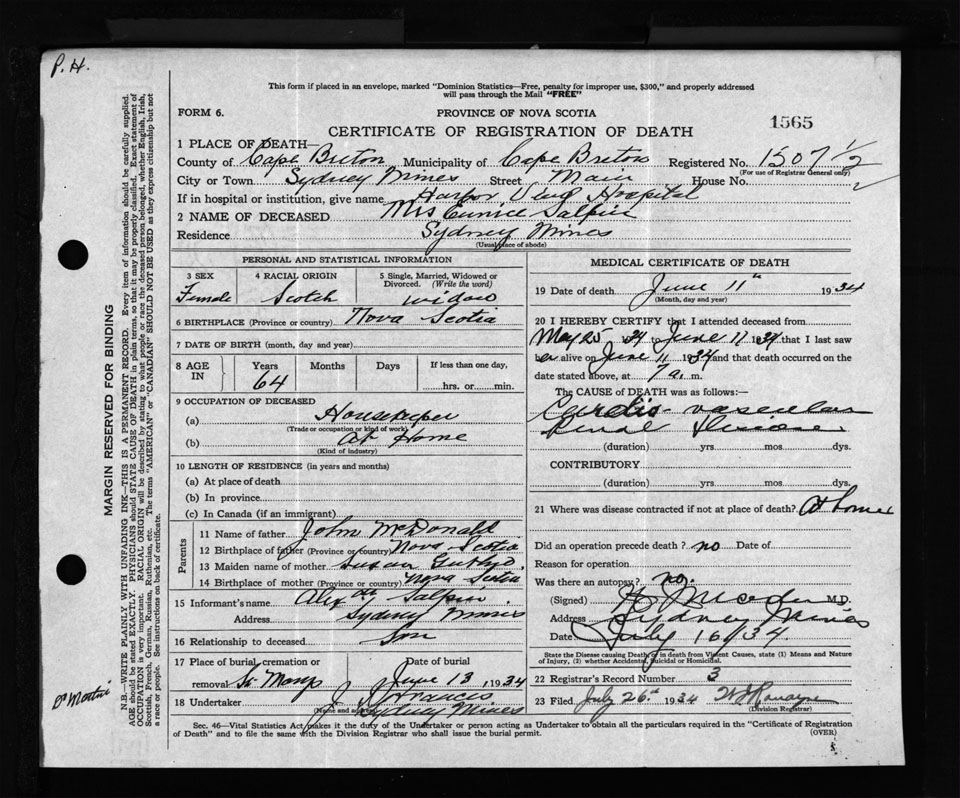 P.H.
This form if placed in an envelope, marked "Dominion Statistics—Free, penalty for improper use, $300," and properly addressed
will pass through the Mail "FREE"
FORM 6.
PROVINCE OF NOVA SCOTIA
1565
CERTIFICATE OF REGISTRATION OF DEATH
1 PLACE OF DEATH—
County of Cape Breton Municipality of Cape Breton Registered No. 1507 1/2
(For use of Registrar General only)
City or Town Sydney Mines Street Main House No.
If in hospital or institution, give name Harbor View Hospital
2 NAME OF DECEASED Mrs Eunice Salpin
Residence Sydney Mines
(Usual place of abode)
PERSONAL AND STATISTICAL INFORMATION
3 SEX 4 RACIAL ORIGIN 5 Single, Married, Widowed or
Divorced. (Write the word)
Female Scotch widow
6 BIRTHPLACE (Province or country) Nova Scotia
7 DATE OF BIRTH (month, day and year)
8 AGE IN Years Months Days If less than one day,
64 hrs. or min.
9 OCCUPATION OF DECEASED
(a) Housekeeper
(Trade or occupation or kind of work)
(b) At Home
(Kind of industry)
10 LENGTH OF RESIDENCE (in years and months)
(a) At place of death
(b) In province
(c) In Canada (if an immigrant)
Parents
11 Name of father John McDonald
12 Birthplace of father (Province or country) Nova Scotia
13 Maiden name of mother Susan
14 Birthplace of mother (Province or country) Nova Scotia
15 Informant's name Alexdr Salpin
Address Sydney Mines
16 Relationship to deceased Son
17 Place of burial, cremation or Date of burial
removal St. Marys June 13, 1934
18 Undertaker
(Name and address) Sydney Mines
MEDICAL CERTIFICATE OF DEATH
19 Date of death June 11" 1934
(Month, day and year)
20 I HEREBY CERTIFY that I attended deceased from
May 25 34 to June 11 1934 that I last saw
her alive on June 11 1934 and that death occurred on the
date stated above, at 7 a. m.
The CAUSE OF DEATH was as follows:—
Cardio-vascular
Renal Disease
(duration) yrs mos. dys.
CONTRIBUTORY
(duration) yrs mos. dys.
21 Where was disease contracted if not at place of death? At home
Did an operation precede death? no Date of
Reason for operation
Was there an autopsy? no.
(Signed) M.D.
Address Sydney Mines
Date July 16/34.
State the Disease causing Death, or in death from Violent Causes, state (1) Means and Nature
of Injury, (2) whether Accidental, Suicidal or Homicidal.
22 Registrar's Record Number 3
23 Filed July 26th 1934
(Division Registrar)
Sec. 46—Vital Statistics Act makes it the duty of the Undertaker or person acting as Undertaker to obtain all the particulars required in the "Certificate of Registration
of Death" and to file the same with the Division Registrar who shall issue the burial permit.
(OVER)
MARGIN RESERVED FOR BINDING
N.B.—WRITE PLAINLY WITH UNFADING INK—THIS IS A PERMANENT RECORD. Every item of information should be carefully supplied.
AGE should be stated EXACTLY. PHYSICIANS should STATE CAUSE OF DEATH in plain terms, so that it may be properly classified. Exact statement of
OCCUPATION is very important. RACIAL ORIGIN will be described by stating to what people or race the deceased person belonged, whether English, Irish,
Scottish, French, German, Russian, Ruthenian, etc. The terms "AMERICAN" or "CANADIAN" SHOULD NOT BE USED as they express citizenship but not
a race or people. See instructions on back of certificate.